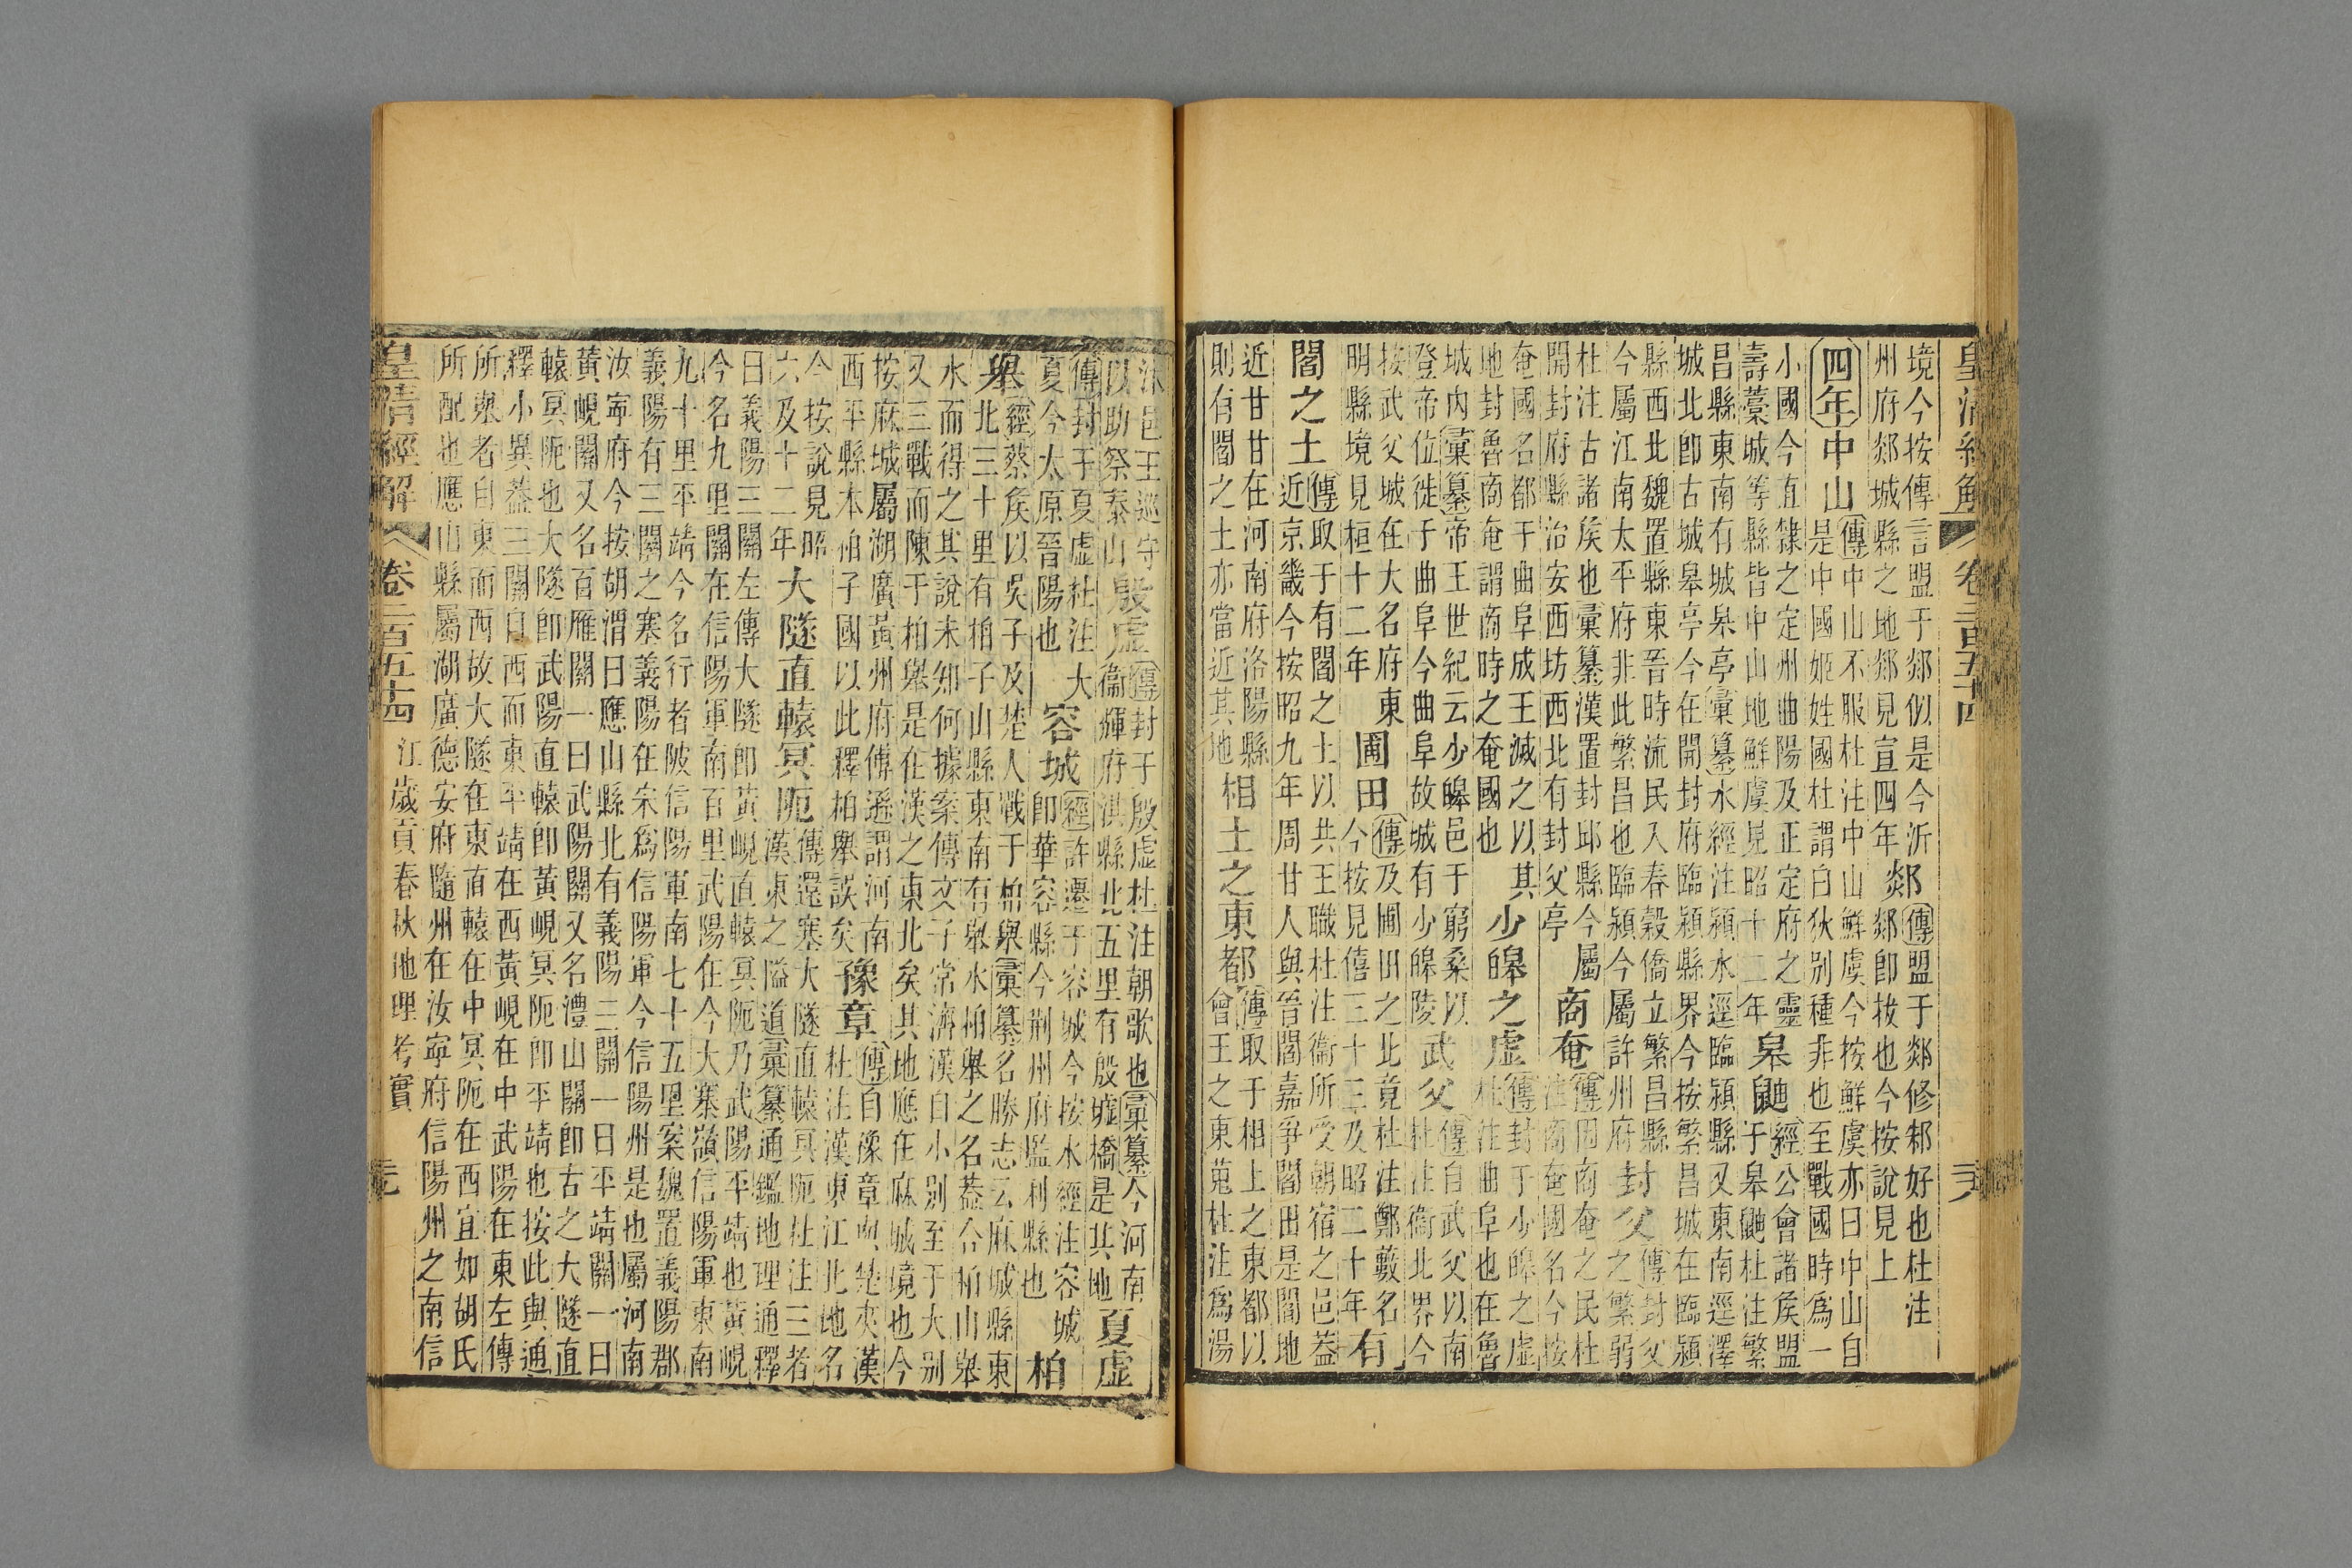 皇清經解 卷二百五十四
境今按傳言盟于郯似是今沂
州府郯城縣之地郯見宣四年
郯
傳盟于郯修邾好也杜注
郯卽拔也今按說見上
四年中山
傳中山不服杜注中山鮮虞今按鮮虞亦曰中山自
是中國姬姓國杜謂白狄別種非也至戰國時爲一
小國今直隸之定州曲陽及正定府之靈
壽藁城等縣皆中山地鮮虞見昭十二年
皋鼬
經公會諸侯盟
于皋鼬杜注繁
昌縣東南有城皋亭彙纂水經注潁水逕臨潁縣又東南逕澤
城北卽古城皋亭今在開封府臨潁縣界今按繁昌城在臨潁
縣西北魏置縣東晉時流民入春穀僑立繁昌縣
今屬江南太平府非此繁昌也臨潁今屬許州府
封父
傳封父
之繁弱
杜注古諸侯也彙纂漢置封邱縣今屬
開封府縣治安西坊西北有封父亭
商奄
傳因商奄之民杜
注商奄國名今按
奄國名都于曲阜成王滅之以其
地封魯商奄謂商時之奄國也
少皞之虛
傳封于少皞之虛
杜注曲阜也在魯
城內彙纂帝王世紀云少皞邑于窮桑以
登帝位徙于曲阜今曲阜故城有少皞陵
武父
傳自武父以南
杜注衞北界今
按武父城在大名府東
明縣境見桓十二年
圃田
傳及圃田之北竟杜注鄭藪名
今按見僖三十三及昭二十年
有
閻之土
傳取于有閻之土以共王職杜注衞所受朝宿之邑蓋
近京畿今按昭九年周甘人與晉閻嘉爭閻田是閻地
近甘甘在河南府洛陽縣
則有閻之土亦當近其地
相土之東都
傳取于相土之東都以
會王之東蒐杜注爲湯
沐邑王巡守
以助祭泰山
殷虛
傳封于殷虛杜注朝歌也彙纂今河南
衞輝府淇縣北五里有殷墟橋是其地
夏虛
傳封于夏虛杜注大
夏今太原晉陽也
容城
經許遷于容城今按水經注容城
卽華容縣今荆州府監利縣也
柏
舉
經蔡侯以吳子及楚人戰于柏舉彙纂名勝志云麻城縣東
北三十里有柏子山縣東南有舉水柏舉之名蓋合柏山舉
水而得之其說未知何據案傳文子常濟漢自小別至于大別
又三戰而陳于柏舉是在漢之東北矣其地應在麻城境也今
按麻城屬湖廣黃州府傅遜謂河南
西平縣本柏子國以此釋柏舉誤矣
豫章
傳自豫章與楚夾漢
杜注漢東江北地名
今按說見昭
六及十二年
大隧直轅冥阨
傳還塞大隧直轅冥阨杜注三者
漢東之隘道彙纂通鑑地理通釋
曰義陽三關左傳大隧卽黃峴直轅冥阨乃武陽平靖也黃峴
今名九里關在信陽軍南百里武陽在今大寨嶺信陽軍東南
九十里平靖今名行者陂信陽軍南七十五里案魏置義陽郡
義陽有三關之塞義陽在宋爲信陽軍今信陽州是也屬河南
汝寧府今按胡渭曰應山縣北有義陽三關一曰平靖關一曰
黃峴關又名百雁關一曰武陽關又名澧山關卽古之大隧直
轅冥阨也大隧卽武陽直轅卽黃峴冥阨卽平靖也按此與通
釋小異蓋三關自西而東平靖在西黃峴在中武陽在東左傳
所舉者自東而西故大隧在東直轅在中冥阨在西宜如胡氏
所配也應山縣屬湖廣德安府隨州在汝寧府信陽州之南信
皇清經解 卷二百五十四 江歲貢春秋地理考實